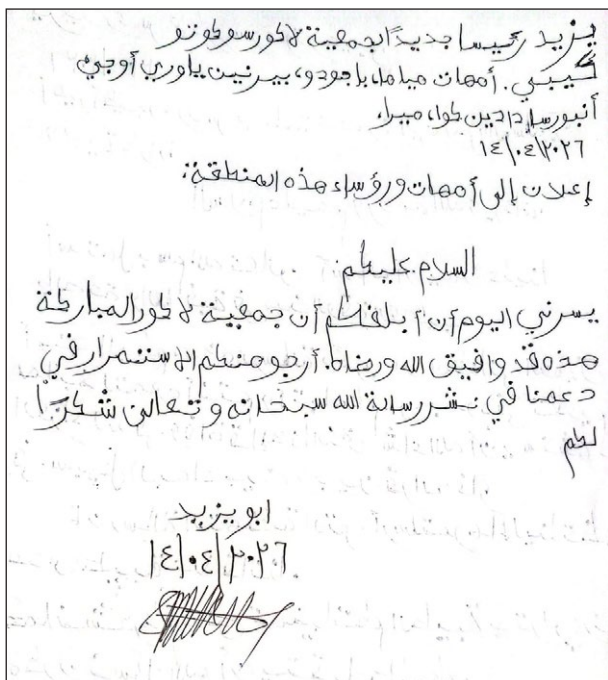 يزيد رئيسا جديدًا لجمعية لاكور سوكوتو
كيبي. أمهات مياما، باجودو، بيرنين ياوري أوجي
أنبورسا دادين كوا، ميرا،
١٤\٠٤\٢٠٢٦
إعلان إلى أمهات ورؤساء هذه المنطقة:
السلام عليكم
يسرني اليوم أن أبلغكم أن جمعية لاكور المباركة
هذه قد وافيق الله ورضاه. أرجو منكم الاستمرار في
دعمنا في نشر رسالة الله سبحانه وتعالى شكرًا
لكم
ابو يزيد
١٤|٠٤|٢٠٢٦